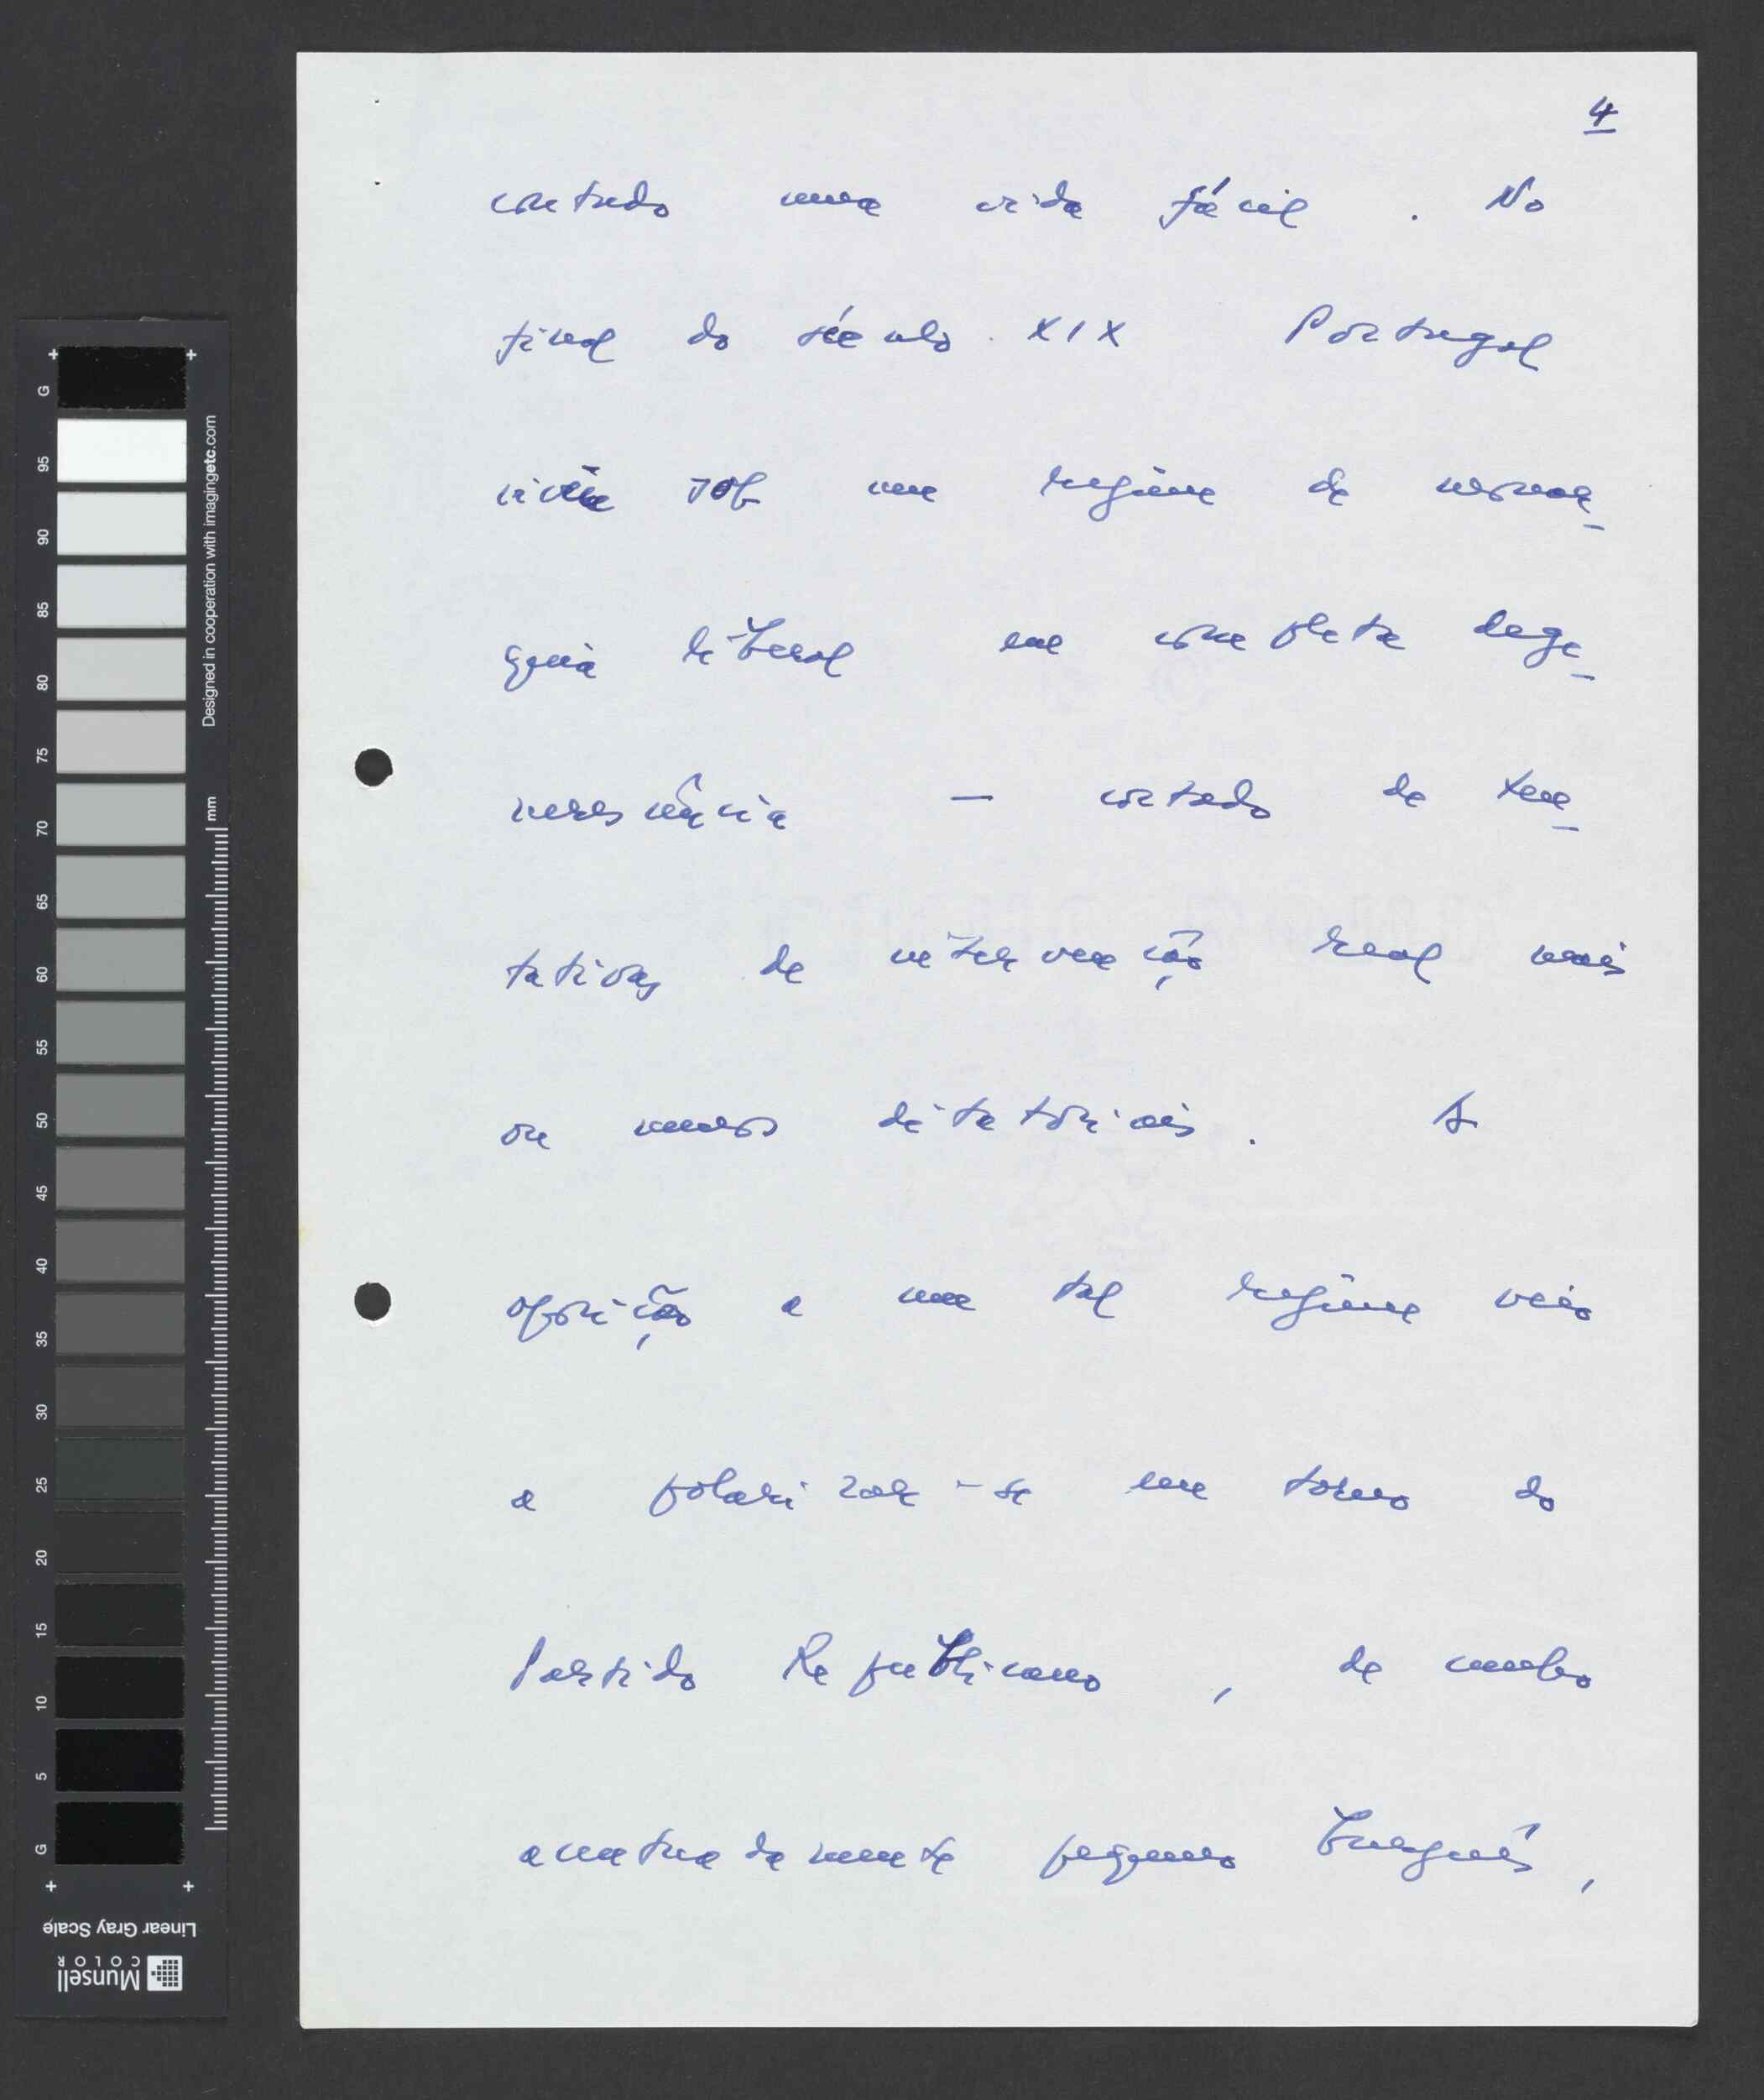 4
contudo uma vida fácil. No
final do século XIX Portugal
vivia sob um regime de monar-
quia liberal em completa dege-
nerescência — cortado de ten-
tativas de intervenção real mais
ou menos ditatoriais. A
oposição a um tal regime veio
a polarizar-se em torno do
Partido Republicano, de cunho
acentuadamente pequeno burguês,
G
95
90
85
80
75
70
65
60
55
50
45
40
35
30
25
20
15
10
5
G
Designed in cooperation with imagingetc.com
mm
Linear Gray Scale
Munsell
COLOR